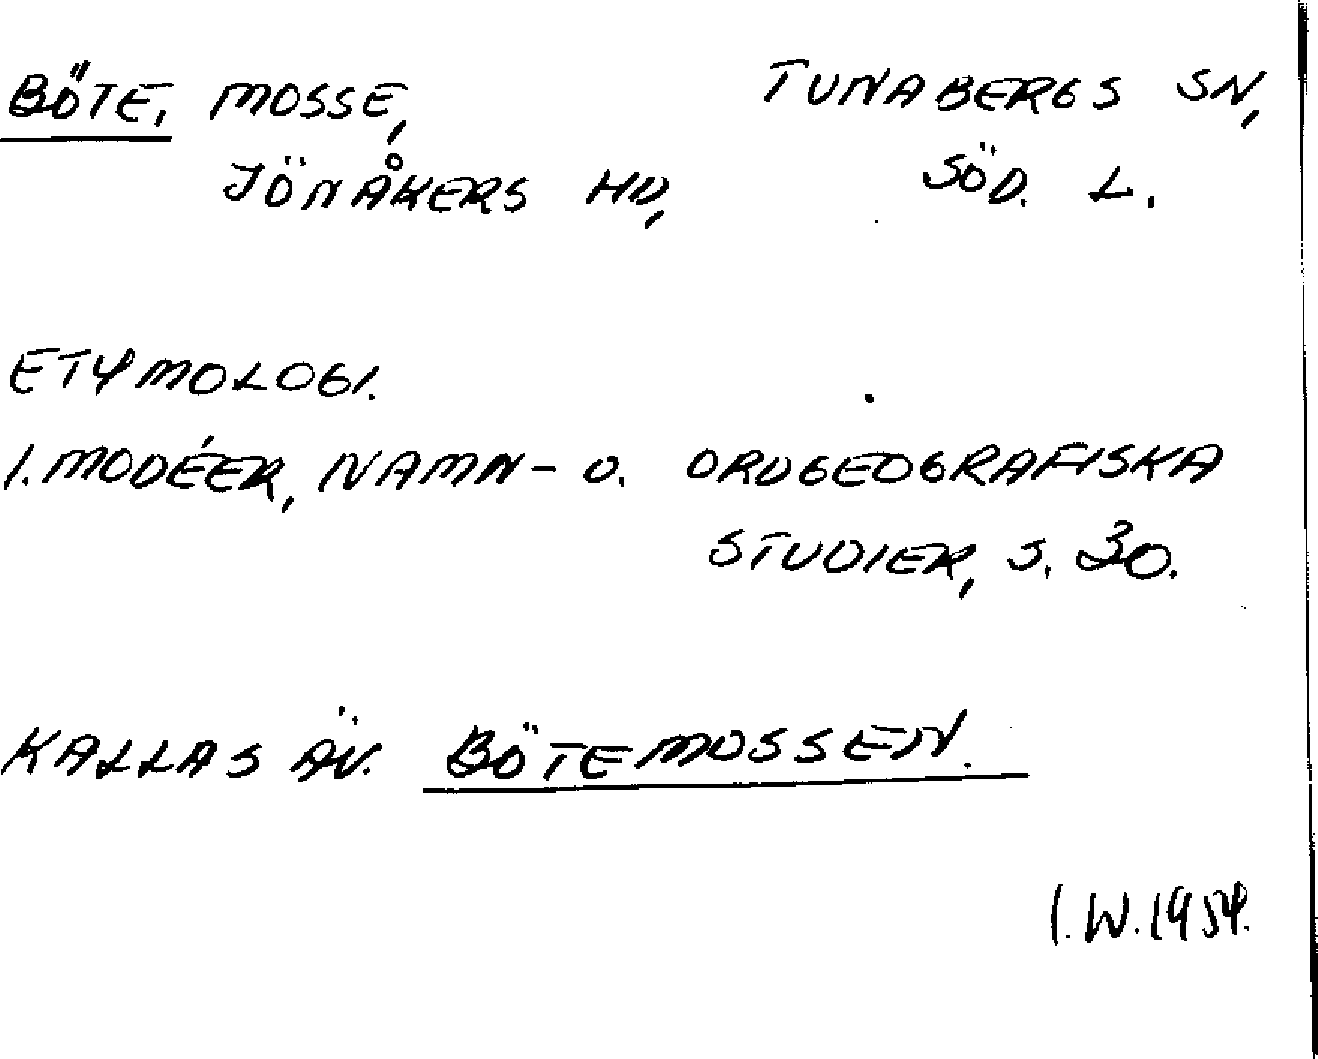 BÖTE, MOSSE, TUNABERGS SN,
JÖNÅKERS HD, SÖD. L.
ETYMOLOGI.
I. MODÉER, NAMN- O. ORDGEOGRAFISKA
STUDIER, S. 30.
KALLAS ÄV. BÖTEMOSSEN.
I.W. 1954.